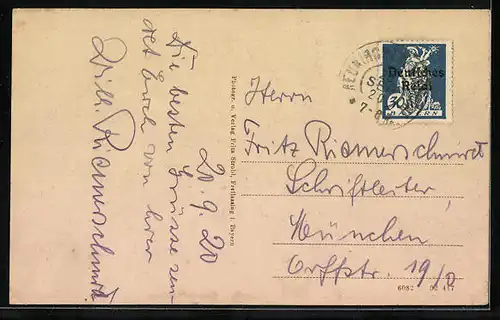 Die besten Grüsse sen-
det Euch von hier
Will. Riemerschmid.
20.9.20
Photogr. u. Verlag Fritz Strobl, Freilassing i. Bayern
Deutsches
Reich
30
BAYERN
SEP
20
7-8
Herrn
Fritz Riemerschmid
Schriftleiter,
München
Orffstr. 19/0
6082